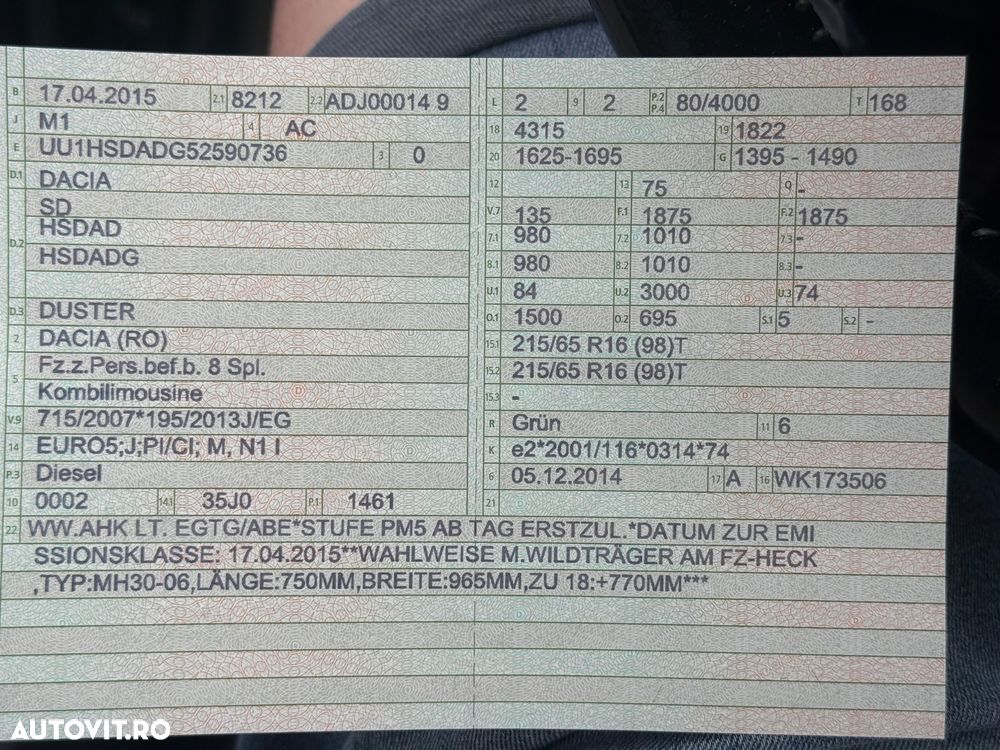 B 17.04.2015 2.1 8212 2.2 ADJ00014 9
J M1 4 AC
E UU1HSDADG52590736 3 0
D.1 DACIA
SD
D.2 HSDAD
HSDADG
D.3 DUSTER
2 DACIA (RO)
5 Fz.z.Pers.bef.b. 8 Spl.
Kombilimousine
V.9 715/2007*195/2013J/EG
14 EURO5;J;PI/CI; M, N1 I
P.3 Diesel
10 0002 14.1 35J0 P.1 1461
L 2 9 2 P.2 P.4 80/4000 T 168
18 4315 19 1822
20 1625-1695 G 1395 - 1490
12 13 75 Q -
V.7 135 F.1 1875 F.2 1875
7.1 980 7.2 1010 7.3 -
8.1 980 8.2 1010 8.3 -
U.1 84 U.2 3000 U.3 74
O.1 1500 O.2 695 S.1 5 S.2 -
15.1 215/65 R16 (98)T
15.2 215/65 R16 (98)T
15.3 -
R Grün 11 6
K e2*2001/116*0314*74
6 05.12.2014 17 A 16 WK173506
21
22 WW.AHK LT. EGTG/ABE*STUFE PM5 AB TAG ERSTZUL.*DATUM ZUR EMI
SSIONSKLASSE: 17.04.2015**WAHLWEISE M.WILDTRÄGER AM FZ-HECK
,TYP:MH30-06,LÄNGE:750MM,BREITE:965MM,ZU 18:+770MM***
AUTOVIT.RO